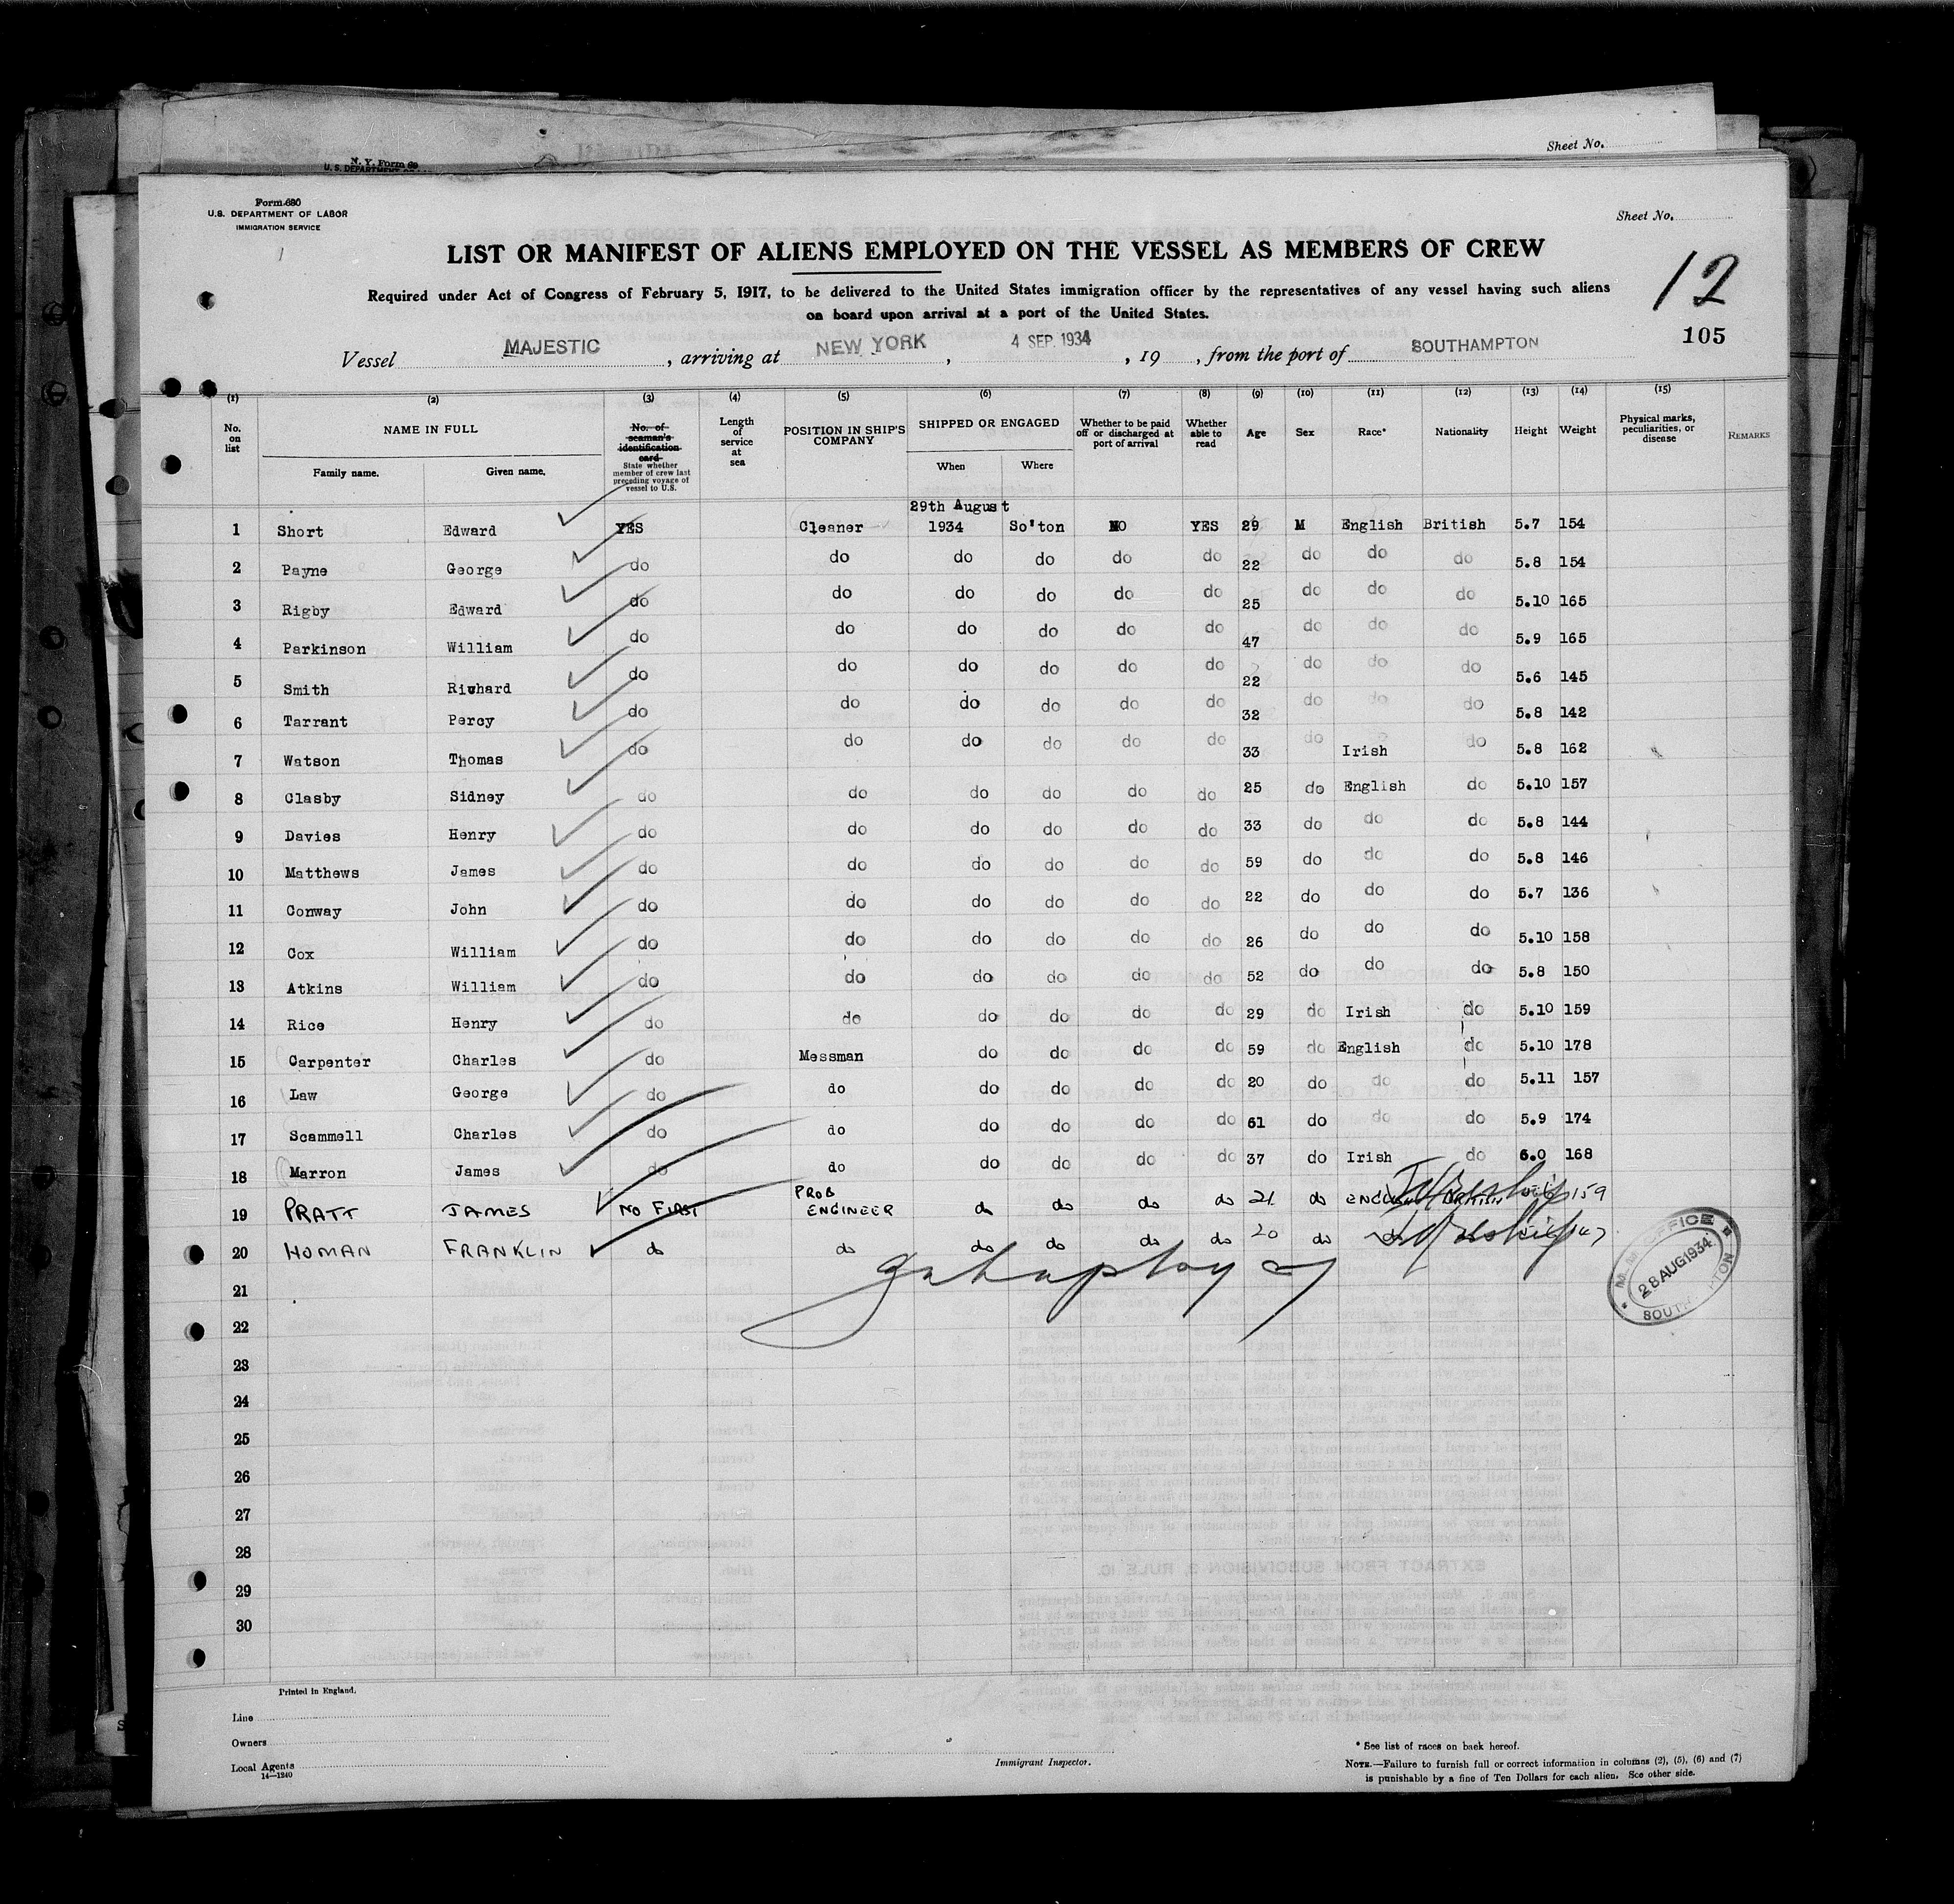 Sheet No.
N. Y. Form 69
Form 680
U.S. DEPARTMENT OF LABOR
IMMIGRATION SERVICE
Sheet No.
LIST OR MANIFEST OF ALIENS EMPLOYED ON THE VESSEL AS MEMBERS OF CREW
12
Required under Act of Congress of February 5, 1917, to be delivered to the United States immigration officer by the representatives of any vessel having such aliens
on board upon arrival at a port of the United States.
105
Vessel MAJESTIC, arriving at NEW YORK, 4 SEP. 1934, 19, from the port of SOUTHAMPTON
(1) (2) (3) (4) (5) (6) (7) (8) (9) (10) (11) (12) (13) (14) (15)
No. on list NAME IN FULL No. of seaman's identification card State whether member of crew last preceding voyage of vessel to U.S. Length of service at sea POSITION IN SHIP'S COMPANY SHIPPED OR ENGAGED Whether to be paid off or discharged at port of arrival Whether able to read Age Sex Race* Nationality Height Weight Physical marks, peculiarities, or disease REMARKS
Family name. Given name. When Where
29th August
1 Short Edward YES Cleaner 1934 So'ton NO YES 29 M English British 5.7 154
2 Payne George do do do do do do 22 do do do 5.8 154
3 Rigby Edward do do do do do do 25 do do do 5.10 165
4 Parkinson William do do do do do do 47 do do do 5.9 165
5 Smith Richard do do do do do do 22 do do do 5.6 145
6 Tarrant Percy do do do do do do 32 do do do 5.8 142
7 Watson Thomas do do do do do do 33 do Irish do 5.8 162
8 Clasby Sidney do do do do do do 25 do English do 5.10 157
9 Davies Henry do do do do do do 33 do do do 5.8 144
10 Matthews James do do do do do do 59 do do do 5.8 146
11 Conway John do do do do do do 22 do do do 5.7 136
12 Cox William do do do do do do 26 do do do 5.10 158
13 Atkins William do do do do do do 52 do do do 5.8 150
14 Rice Henry do do do do do do 29 do Irish do 5.10 159
15 Carpenter Charles do Messman do do do do 59 do English do 5.10 178
16 Law George do do do do do do 20 do do do 5.11 157
17 Scammell Charles do do do do do do 61 do do do 5.9 174
18 Marron James do do do do do do 37 do Irish do 6.0 168
19 PRATT JAMES NO FIRST PROB ENGINEER do do do do 21 do ENGLISH BRITISH 159
20 HOMAN FRANKLIN do do do do do do 20 do
21
22
23
24
25
26
27
28
29
30
M.M. OFFICE
28 AUG 1934
SOUTHAMPTON
Printed in England.
Line
Owners
Local Agents
14—1240
Immigrant Inspector.
* See list of races on back hereof.
NOTE.—Failure to furnish full or correct information in columns (2), (5), (6) and (7)
is punishable by a fine of Ten Dollars for each alien. See other side.